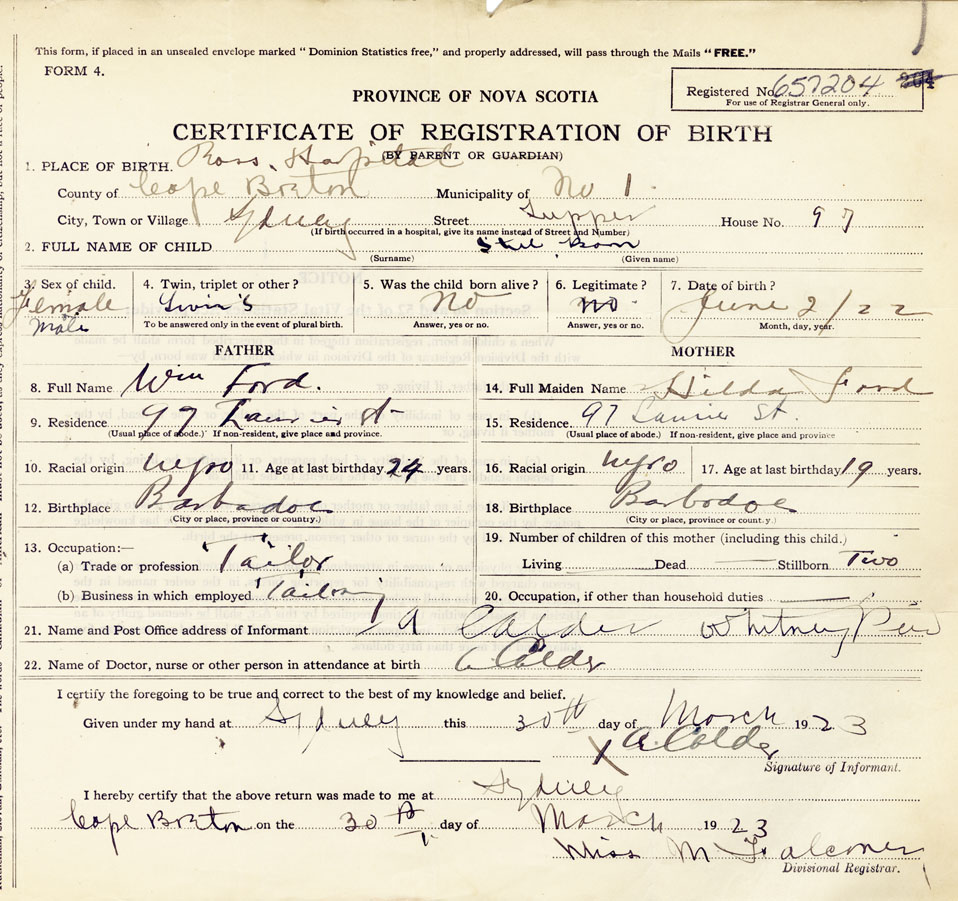 This form, if placed in an unsealed envelope marked “Dominion Statistics free,” and properly addressed, will pass through the Mails “FREE.”
FORM 4.
Registered No. 657204 204
For use of Registrar General only.
PROVINCE OF NOVA SCOTIA
CERTIFICATE OF REGISTRATION OF BIRTH
(BY PARENT OR GUARDIAN)
1. PLACE OF BIRTH. Ross Hospital
County of Cape Breton Municipality of No 1
City, Town or Village Sydney Street Tupper House No. 97
(If birth occurred in a hospital, give its name instead of Street and Number)
2. FULL NAME OF CHILD Stil Born
(Surname) (Given name)
3. Sex of child. 4. Twin, triplet or other? 5. Was the child born alive? 6. Legitimate? 7. Date of birth?
Female Twin's No no June 2/22
male To be answered only in the event of plural birth. Answer, yes or no. Answer, yes or no. Month, day, year.
FATHER MOTHER
8. Full Name Wm Ford. 14. Full Maiden Name Hilda Ford
9. Residence 97 Laurier st 15. Residence 97 Laurier St.
(Usual place of abode.) If non-resident, give place and province. (Usual place of abode.) If non-resident, give place and province
10. Racial origin negro 11. Age at last birthday 24 years. 16. Racial origin negro 17. Age at last birthday 19 years.
12. Birthplace Barbadoe 18. Birthplace Barbadoe
(City or place, province or country.) (City or place, province or country.)
13. Occupation:— 19. Number of children of this mother (including this child.)
(a) Trade or profession "Tailor" Living Dead Stillborn Two
(b) Business in which employed Tailoring 20. Occupation, if other than household duties
21. Name and Post Office address of Informant A Calder Whitney Pier
22. Name of Doctor, nurse or other person in attendance at birth A Calder
I certify the foregoing to be true and correct to the best of my knowledge and belief.
Given under my hand at Sydney this 30th day of March 1923
X A. Calder
Signature of Informant.
I hereby certify that the above return was made to me at Sydney
Cape Breton on the 30th day of March 1923
Miss M Falconer
Divisional Registrar.